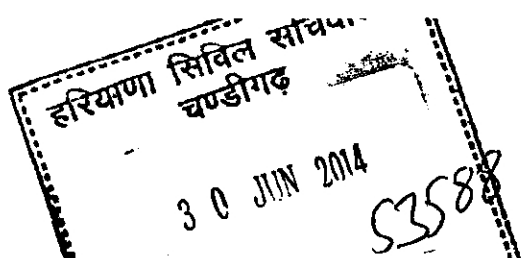 हरियाणा सिविल
चण्डीगढ़
30 JUN 2014
53588